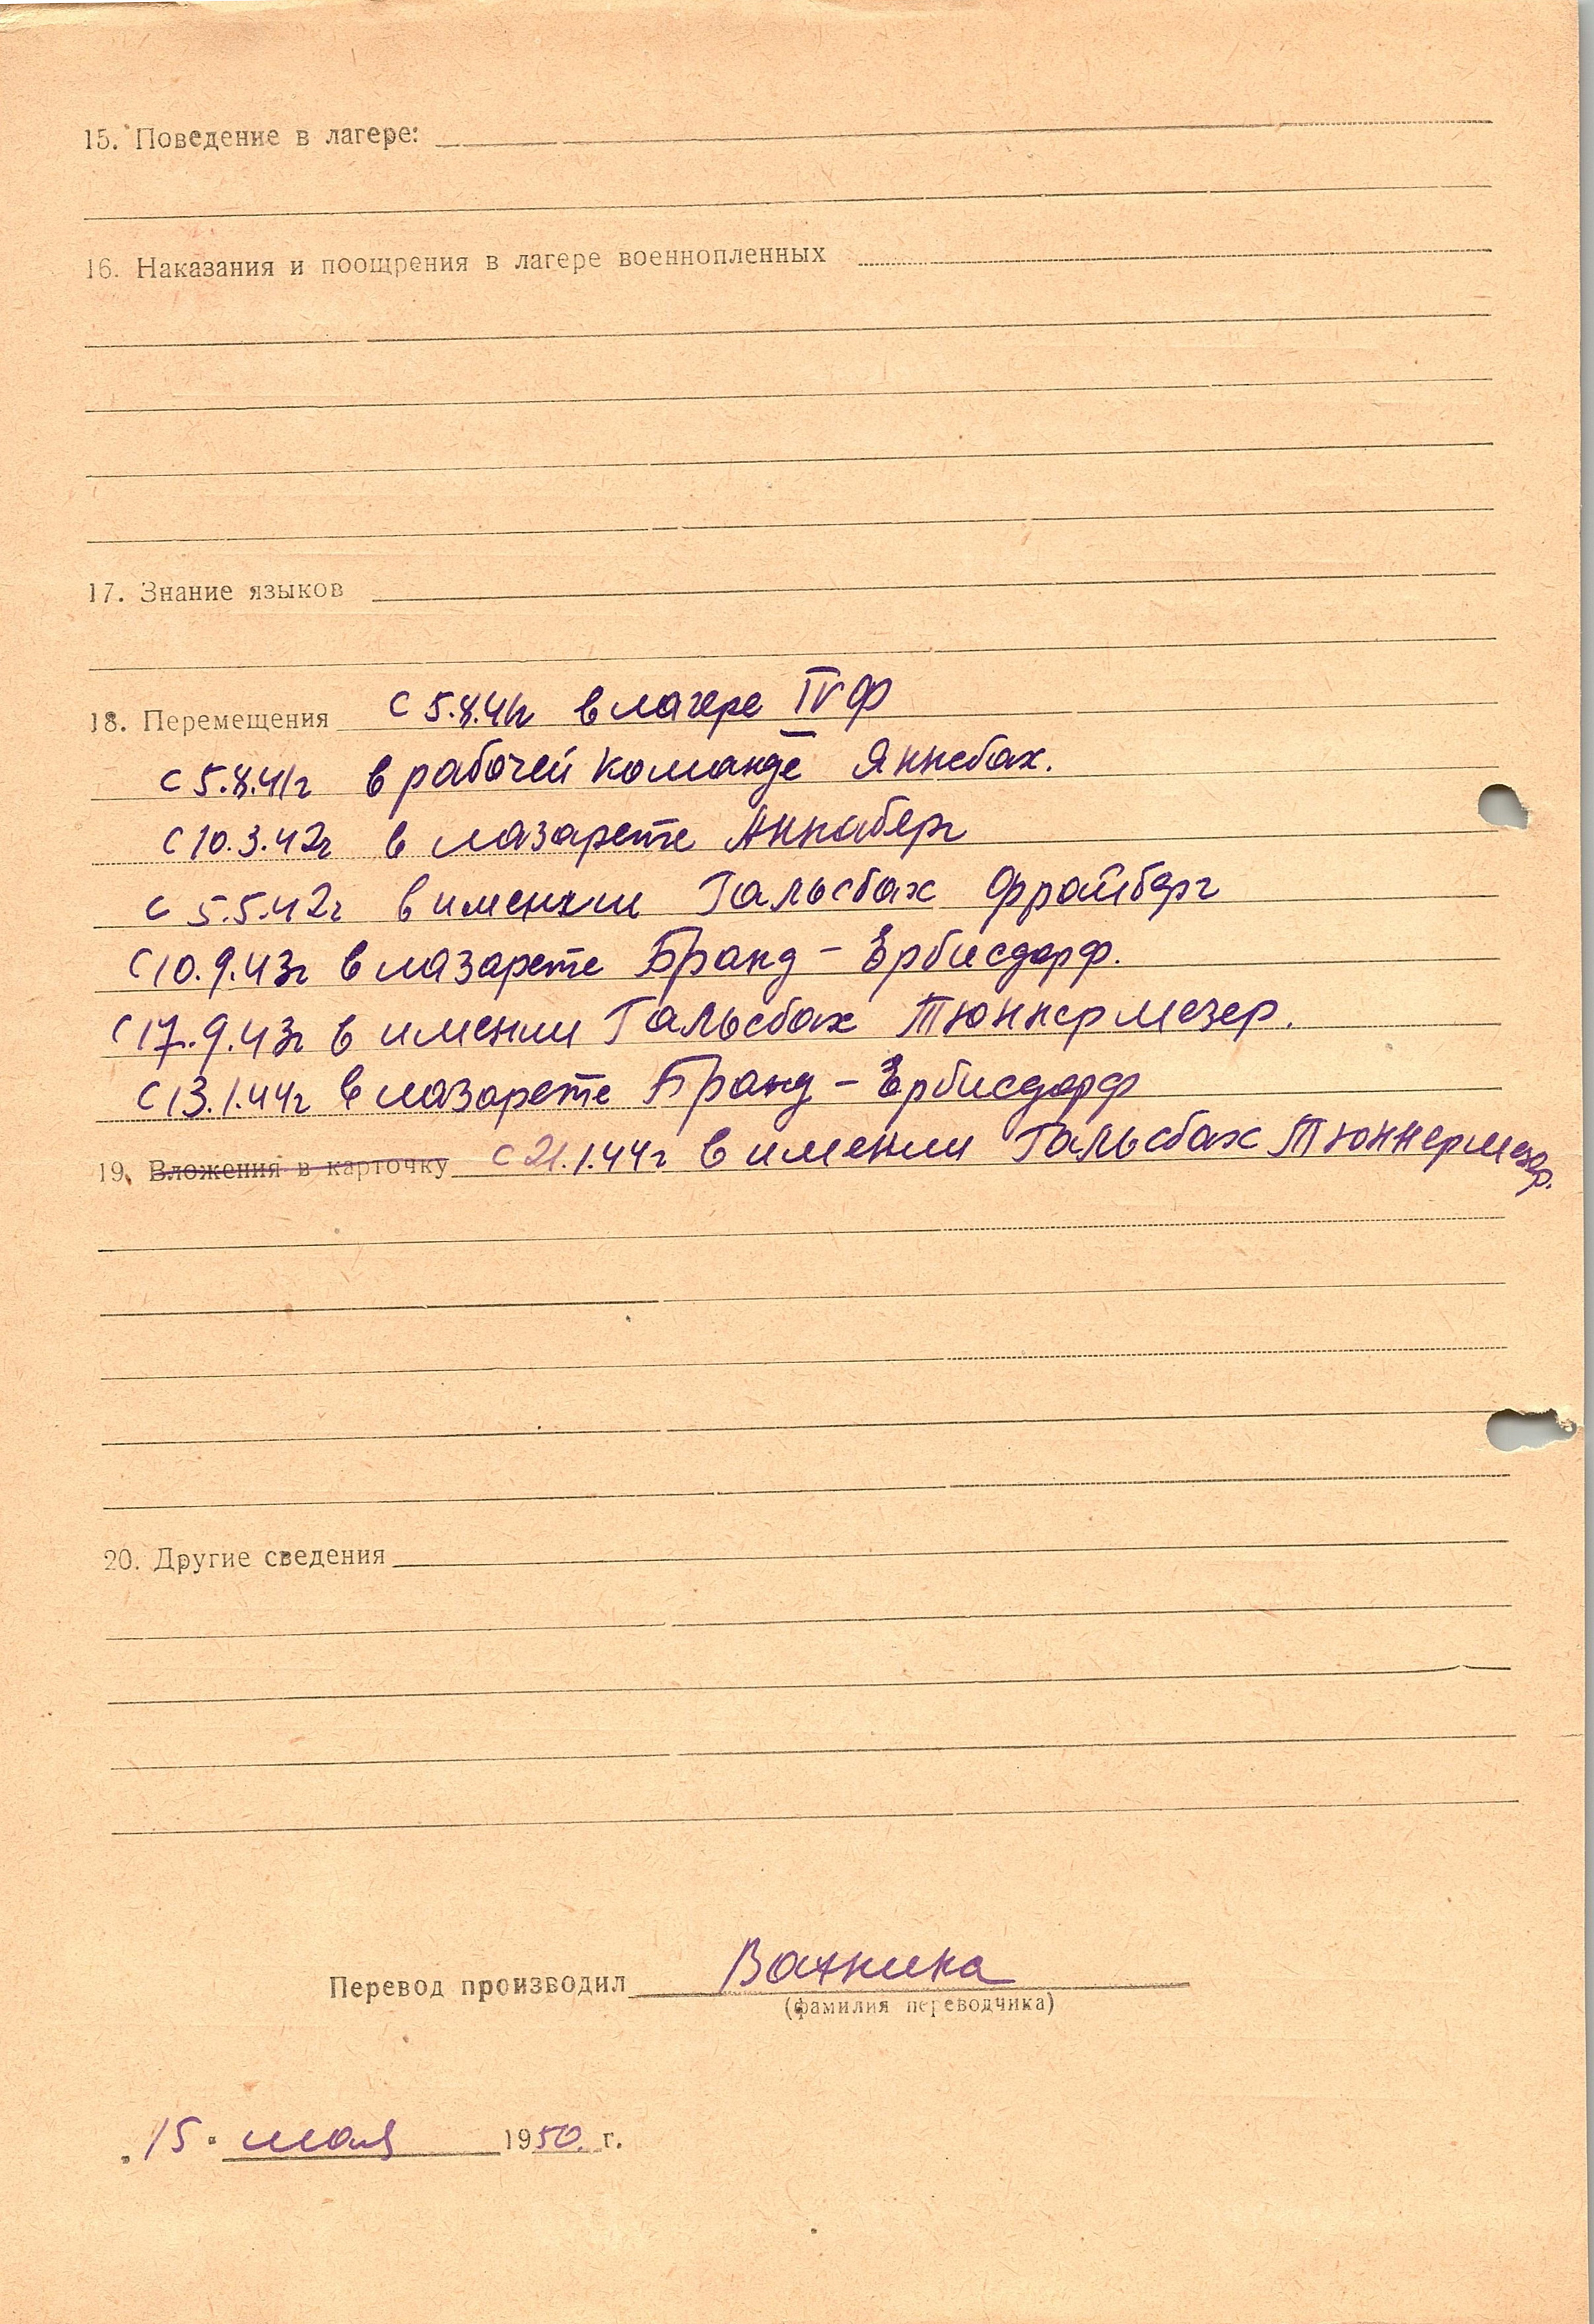 15. Поведение в лагере:
16. Наказания и поощрения в лагере военнопленных
17. Знание языков
18. Перемещения с 5.8.41г в лагере IV Ф
с 5.8.41г в рабочей команде Яннсбах.
с 10.3.42г в лазарете Аннаберг
с 5.5.42г в имении Гальсбах Фрайберг
с 10.9.43г в лазарете Бранд-Ербисдорф.
с 17.9.43г в имении Гальсбах Тюннермезер.
с 13.1.44г в лазарете Бранд-Ербисдорф
19. Вложения в карточку с 21.1.44г в имении Гальсбах Тюннермезер.
20. Другие сведения
Перевод производил
(фамилия переводчика)
15. мая 1950 г.